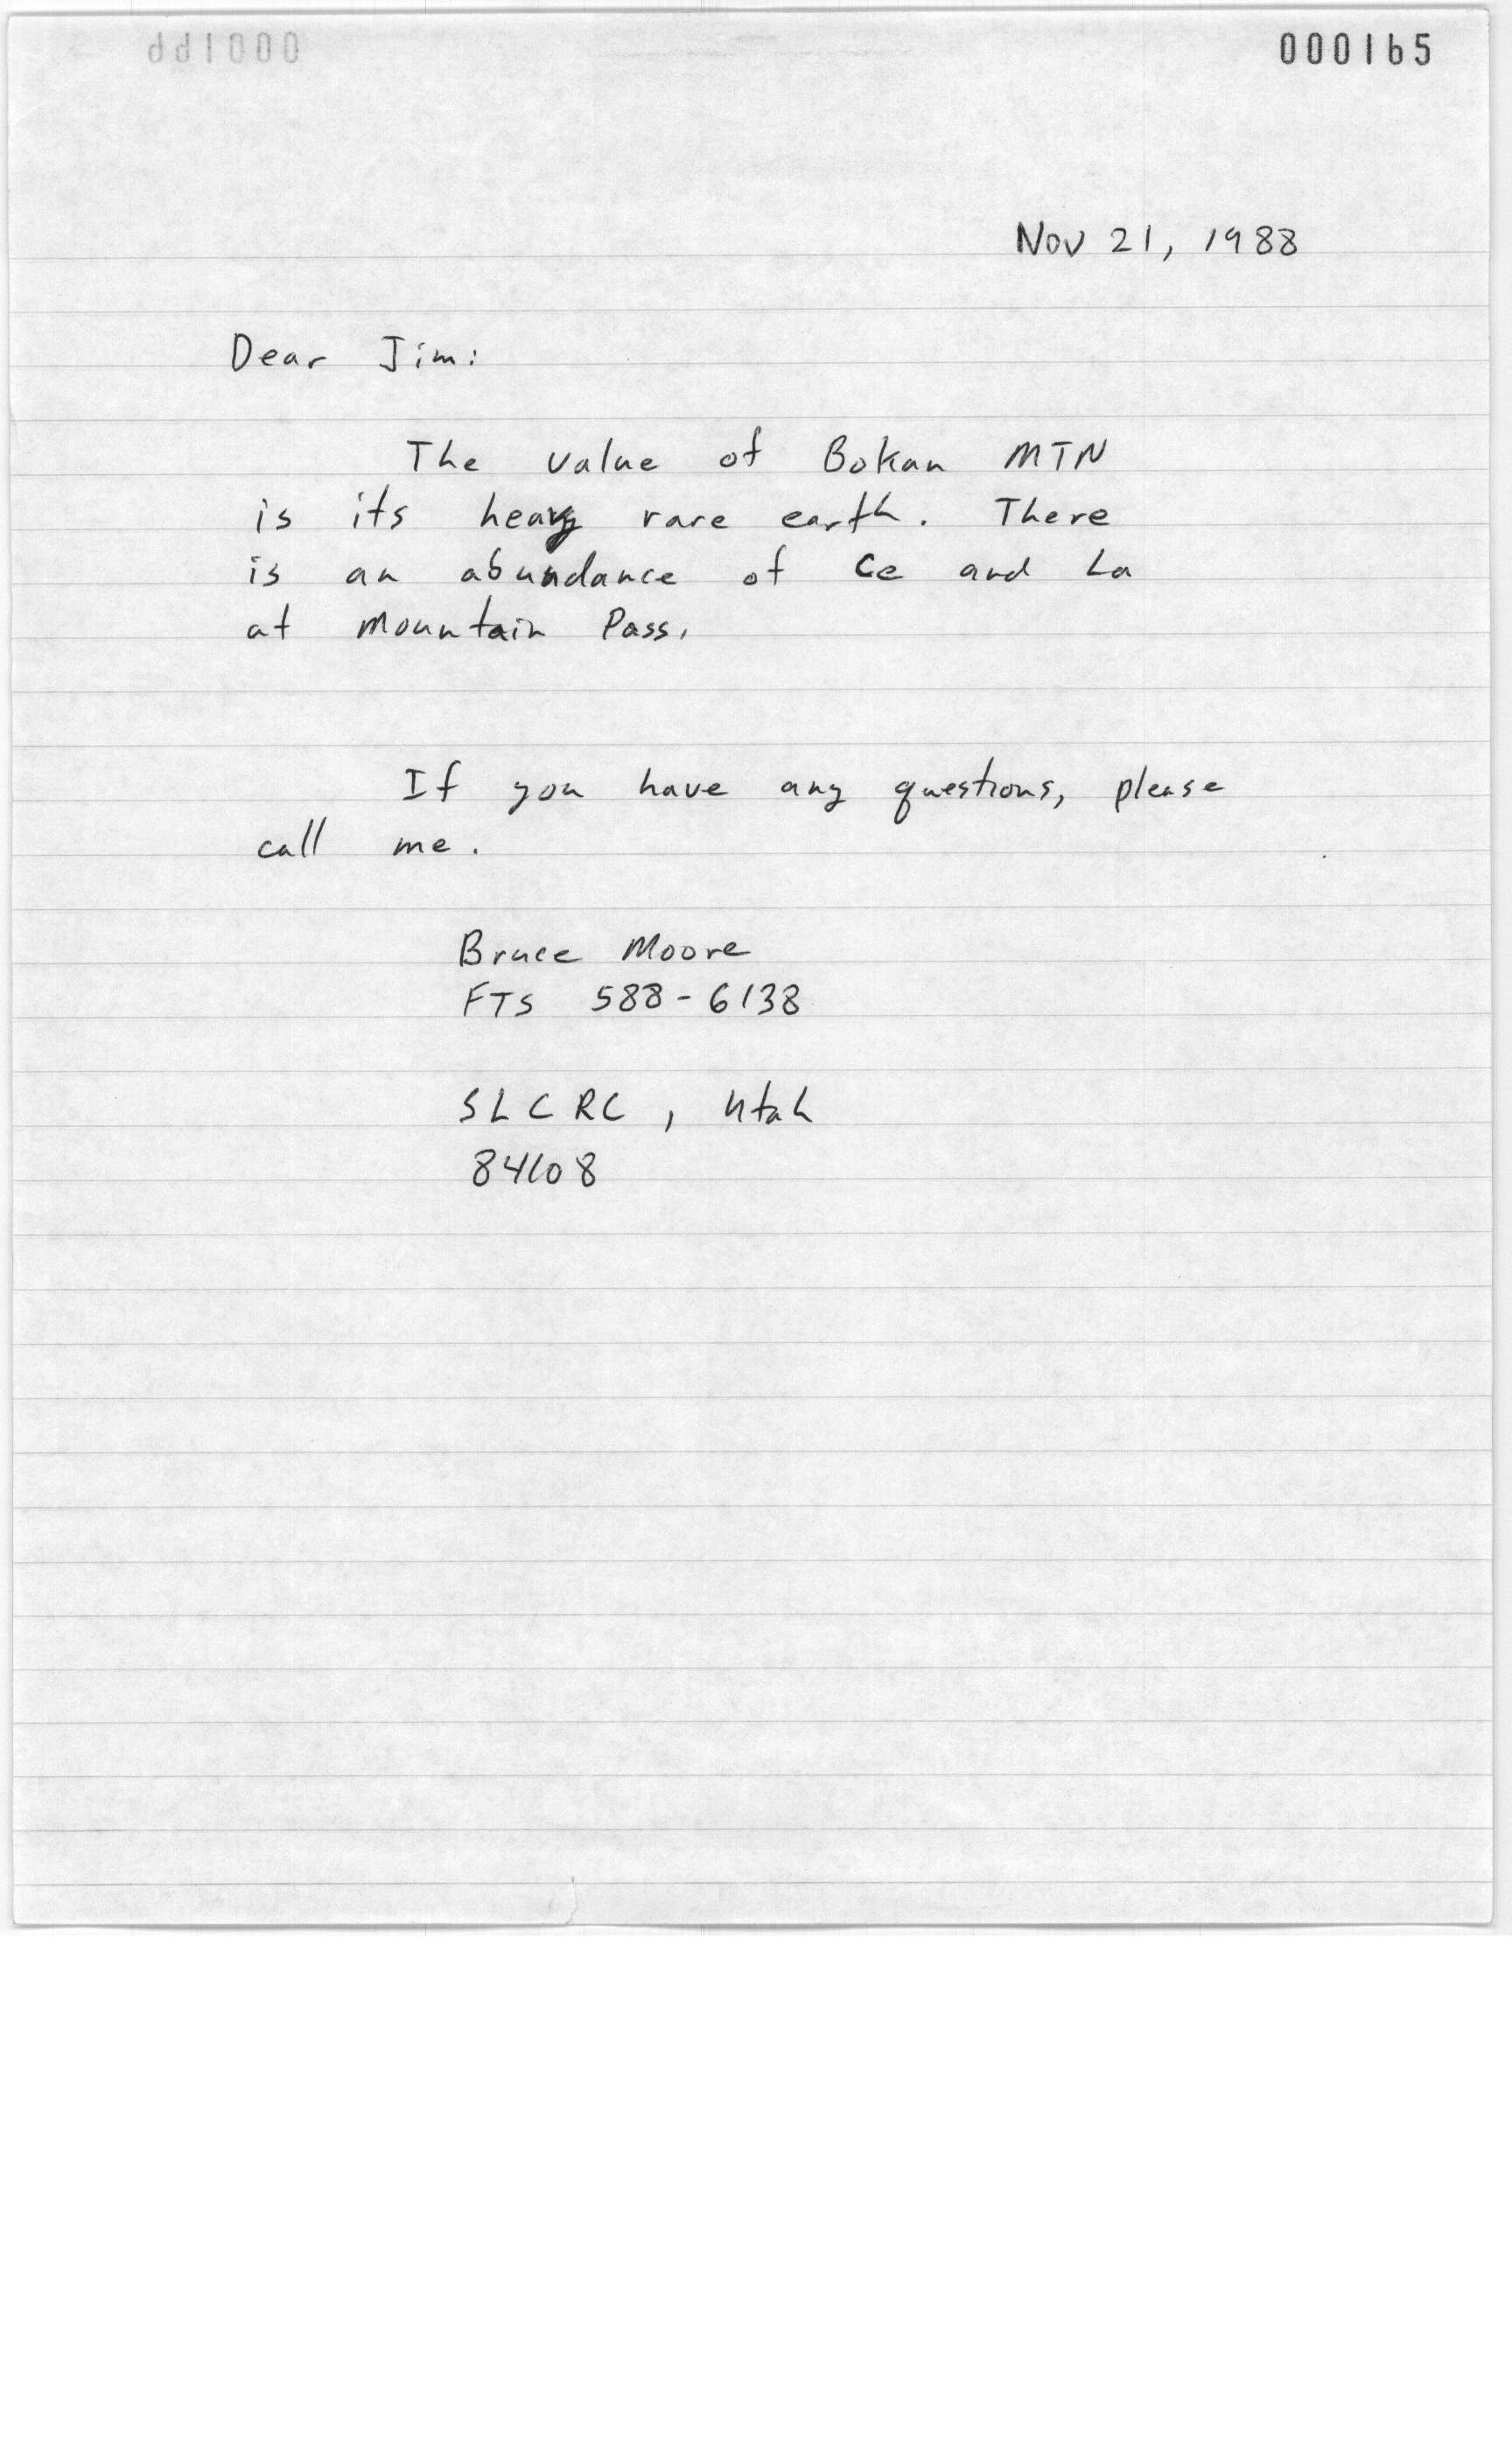 000165
Nov 21, 1988
Dear Jim:
The value of Bokan MTN
is its heavy rare earth. There
is an abundance of Ce and La
at Mountain Pass.
If you have any questions, please
call me.
Bruce Moore
FTS 588-6138
SLCRC, Utah
84108